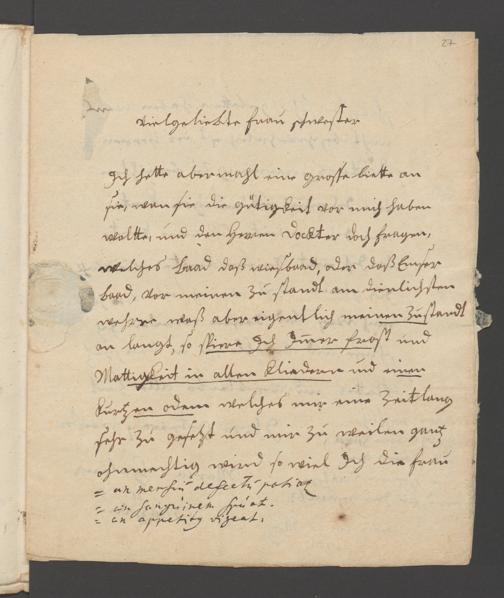 27
vielgeliebte frau schwester
Ich hette abermahl eine grosse bitte an
sie, wan sie die gütigkeit vor mich haben
wolte, und den Herren Dockter doch fragen,
welches baad daß wiesbaad, oder daß Emser
baad, vor meinen zu standt am dienlichsten
wehre waß aber eigentlich meinen zustandt
an langt, so spiere Ich Immer frost und
Mattigkeit in allen gliedern und einen
kurtzen odem welches mir eine Zeitlang
sehr zu gesetzt und mir zu weilen gantz
ohnmechtig wird so viel Ich die frau
= an mensiu defectu patiar
= an sanguinem spuat.
= an appetitg vigeat.